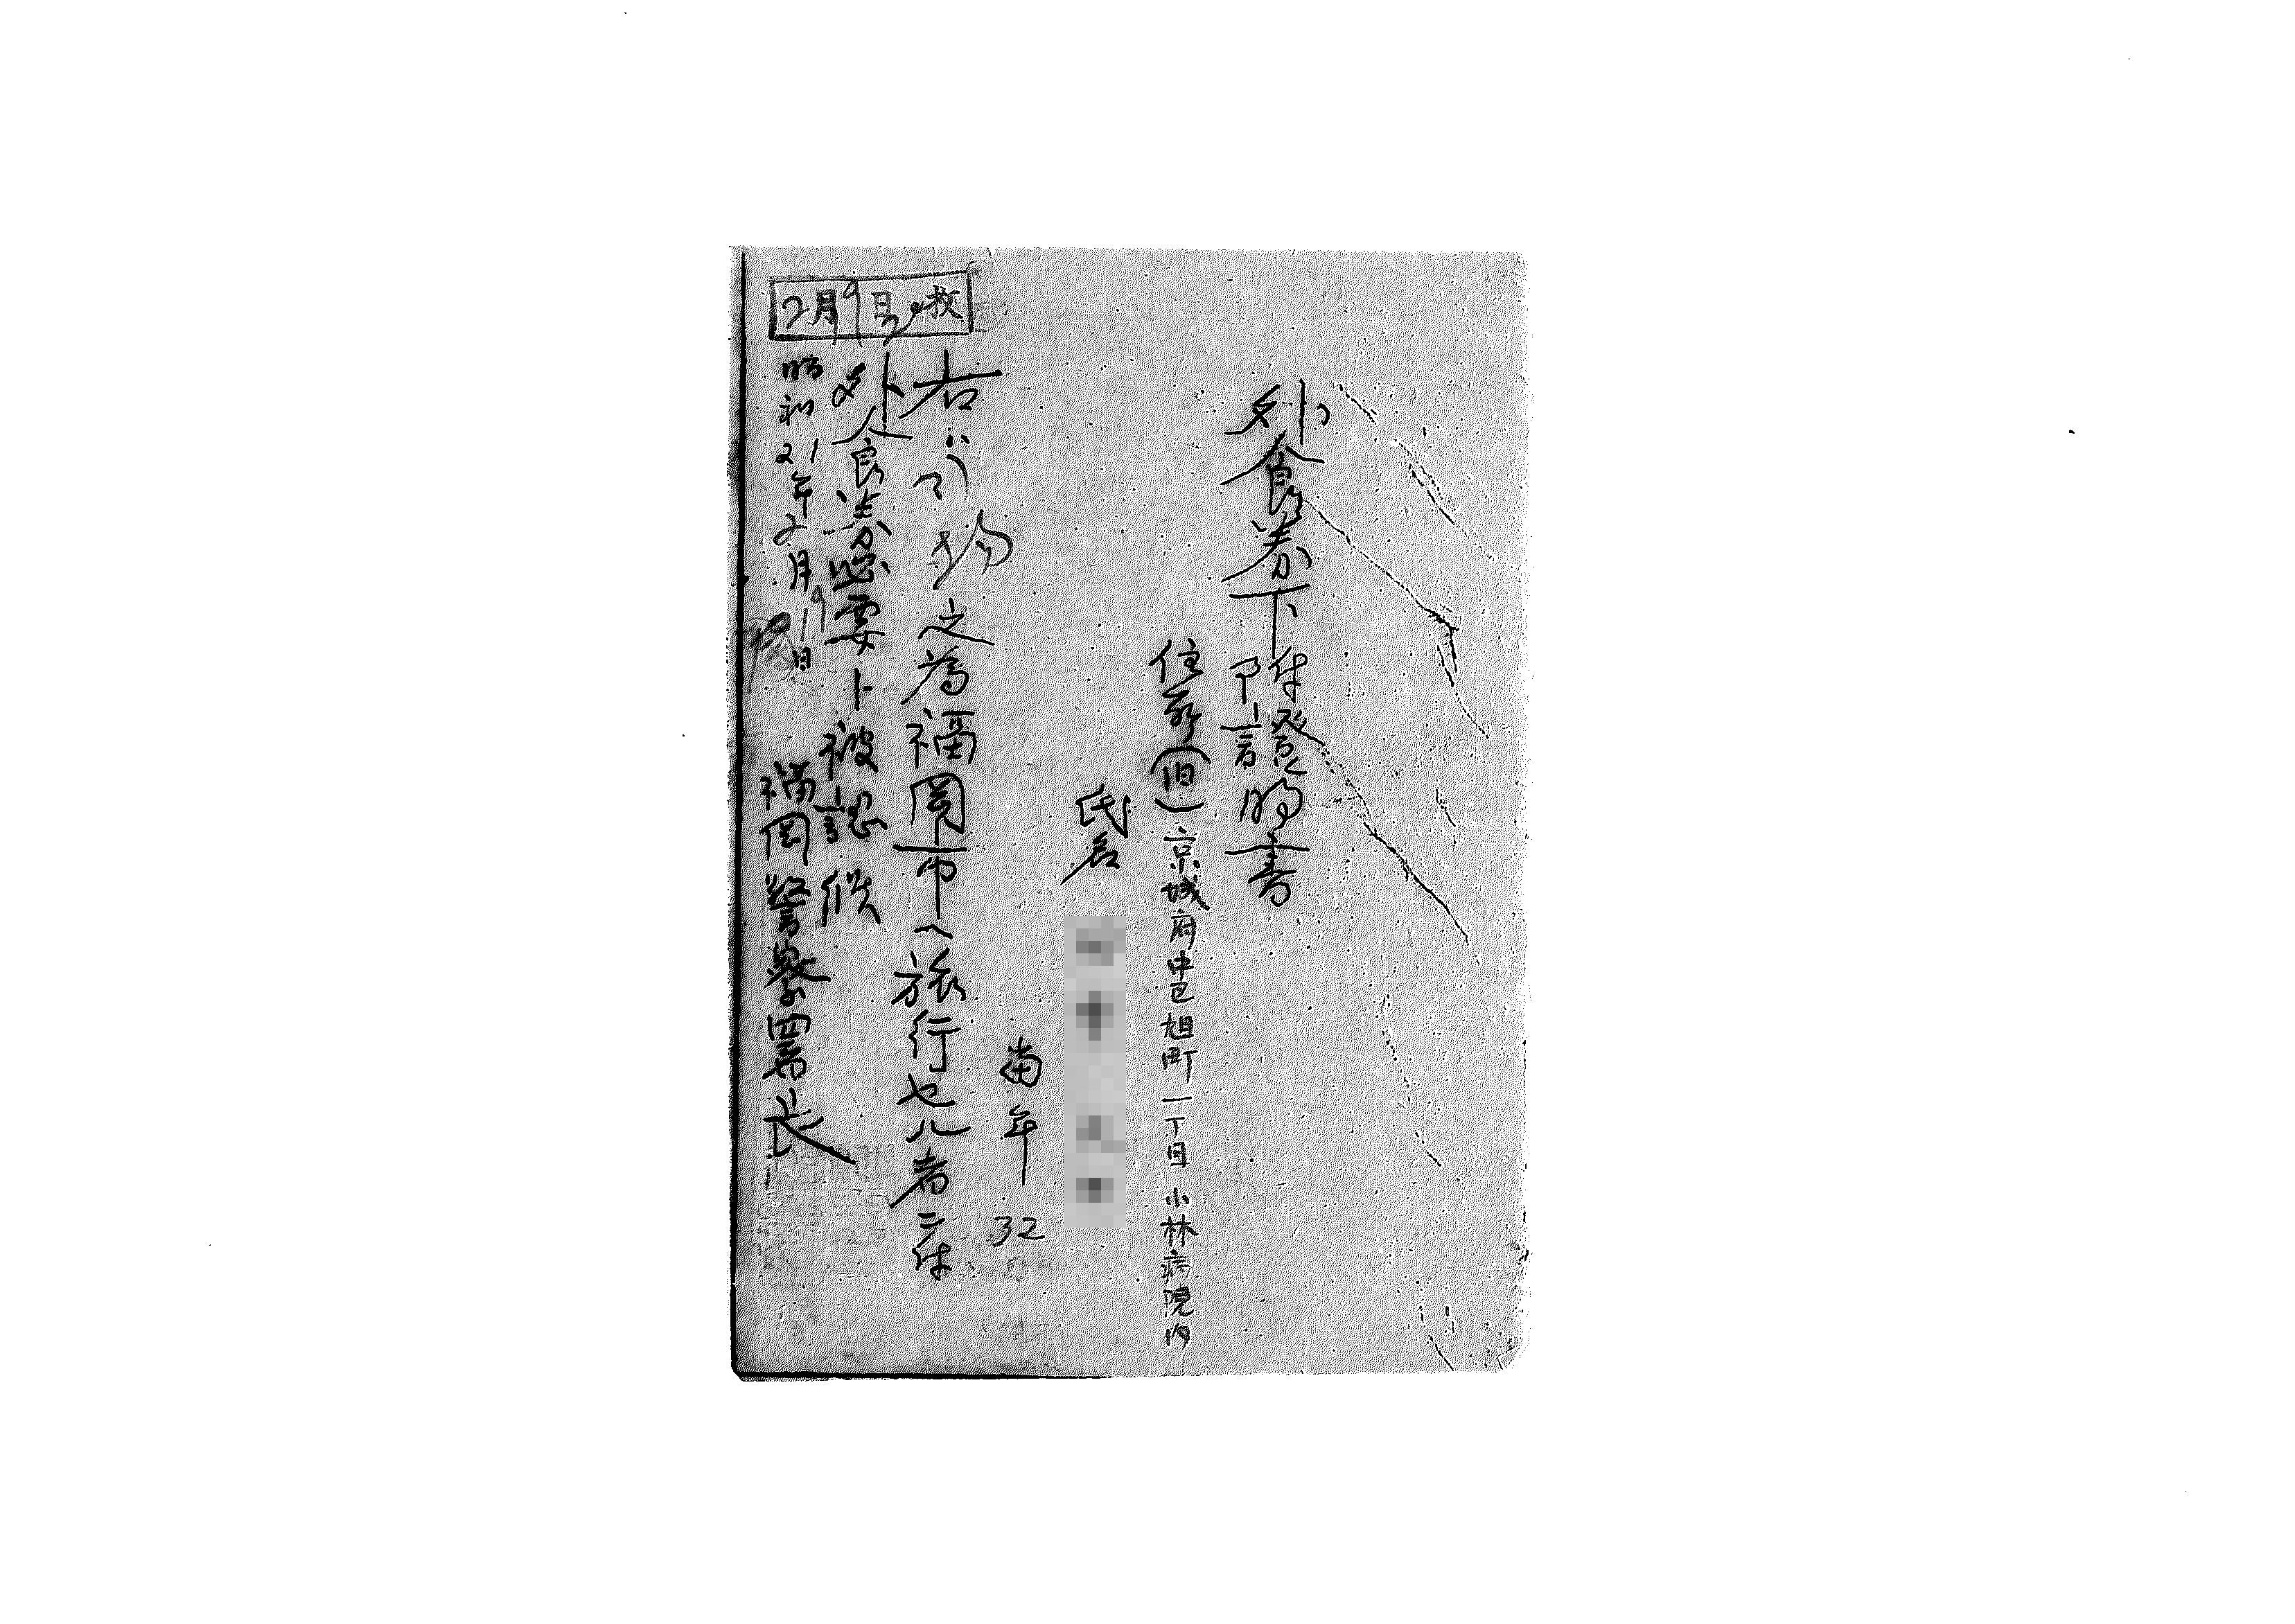 外食券下付證明書
住所(旧)京城府中区旭町一丁目 小林病院内
氏名
当年 32
右ハ引揚之為福岡市ヘ旅行セル者ニ付
外食券必要ト被認候
2月9日 枚
昭和21年2月9日
福岡警察署長